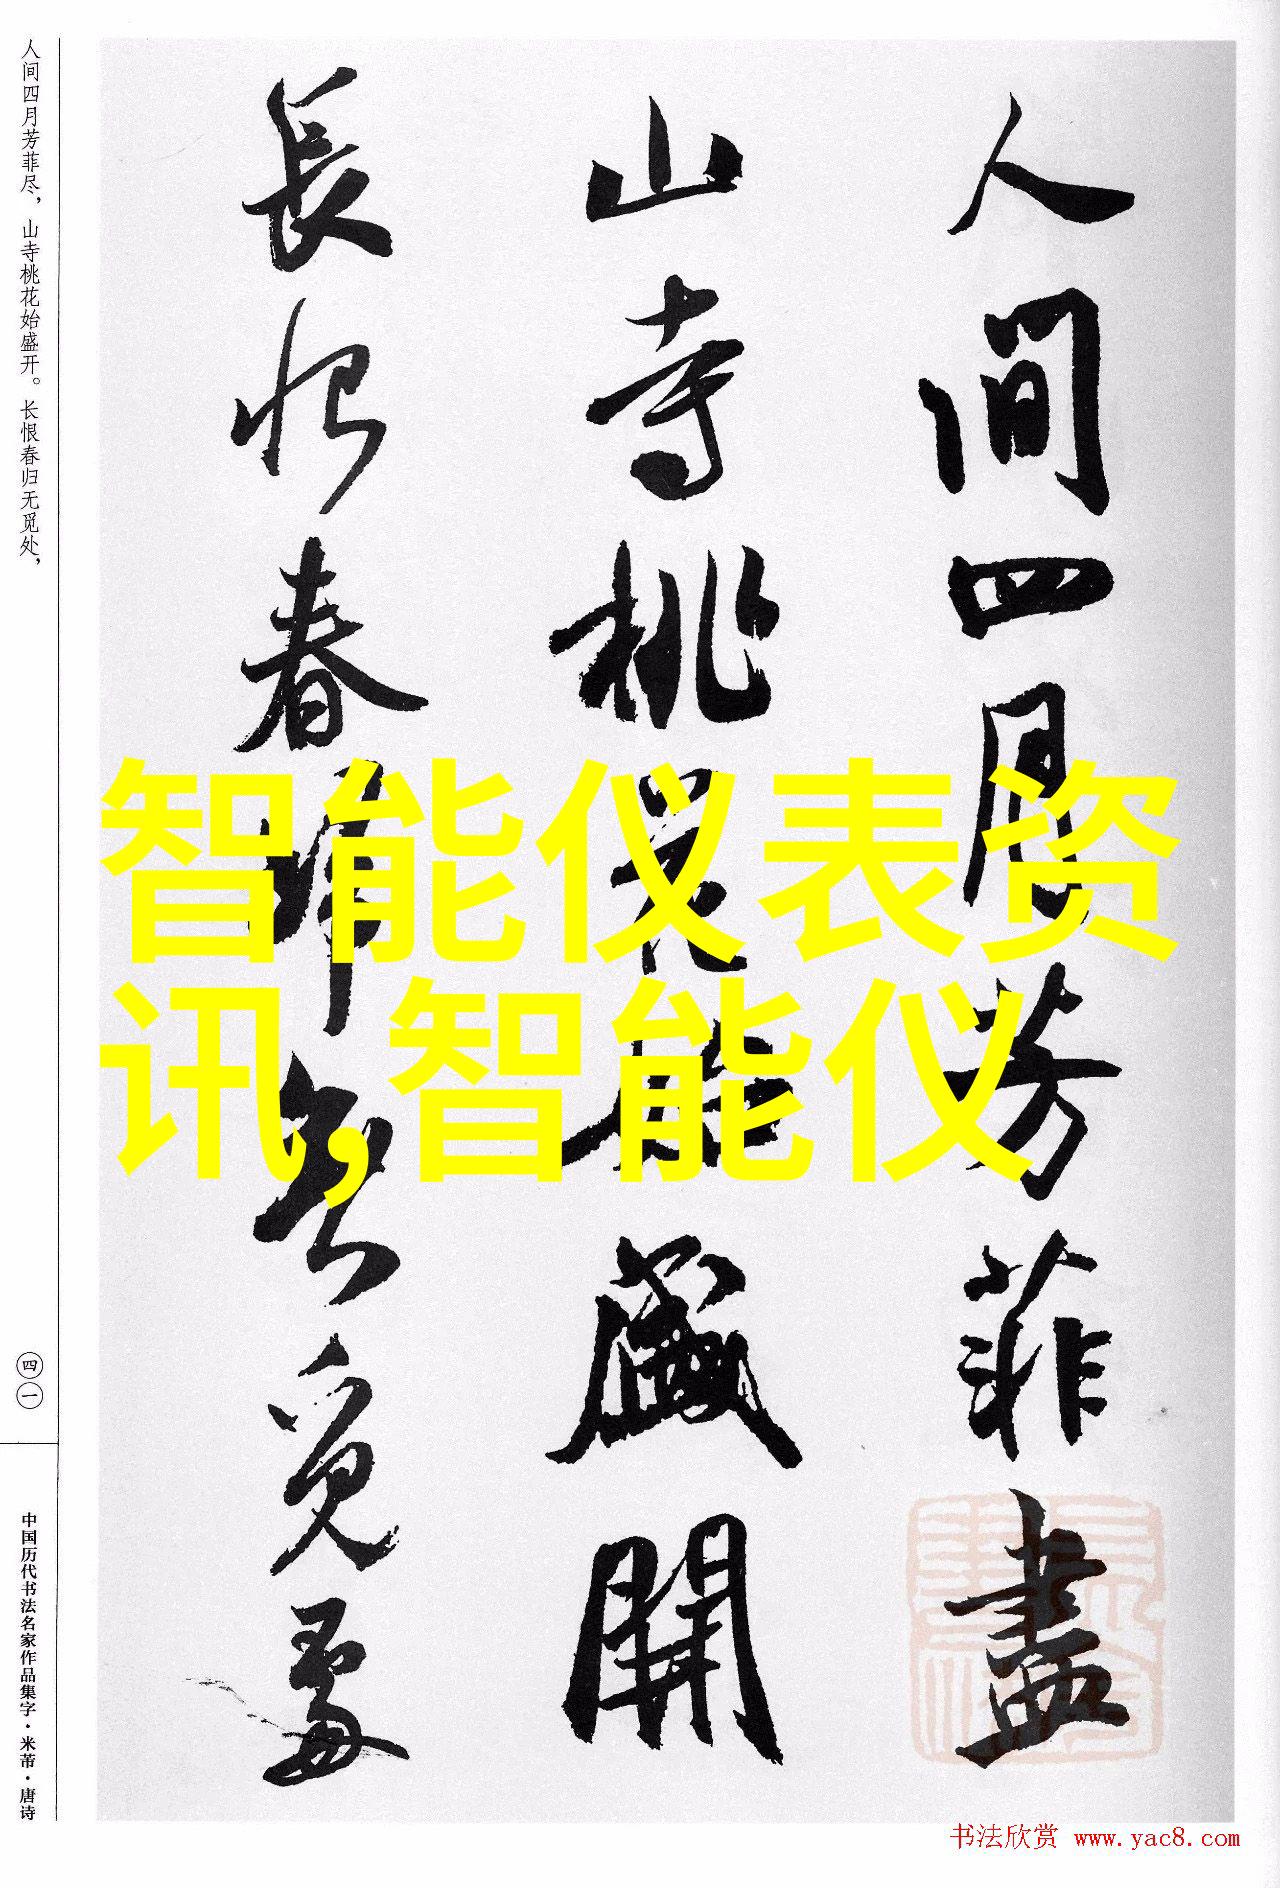 人间四月芳菲尽，山寺桃花始盛开。长恨春归无觅处，
人間四月芳菲盡
山寺桃花始盛開
長恨春歸無覓處
智能仪表资
讯,智能仪
四一
中国历代书法名家作品集字·米芾·唐诗
书法欣赏 www.yac8.com